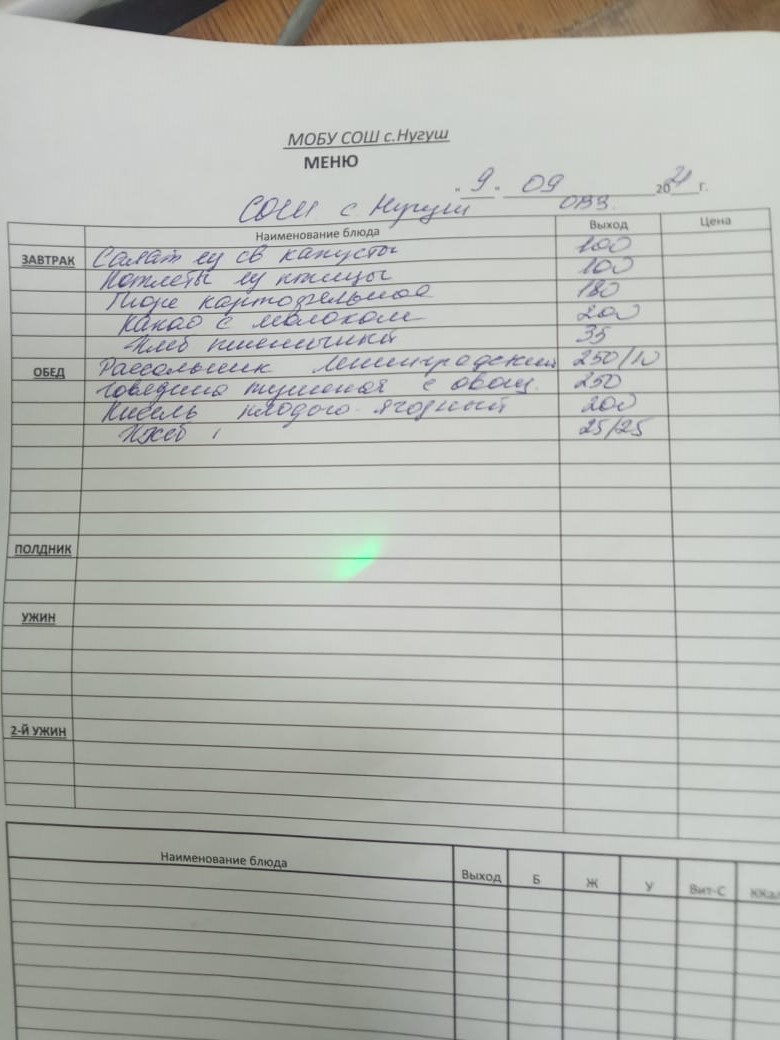 МОБУ СОШ с.Нугуш
МЕНЮ
"9" 09 2021 г.
СОШ с. Нугуш ОВЗ
Наименование блюда Выход Цена
ЗАВТРАК Салат из св капусты 100
Котлеты из птицы 100
Пюре картофельное 180
Какао с молоком 200
Хлеб пшеничный 35
ОБЕД Рассольник Ленинградский 250/10
Говядина тушеная с овощ. 250
Кисель плодово ягодный 200
Хлеб 25/25
ПОЛДНИК
УЖИН
2-Й УЖИН
Наименование блюда Выход Б Ж У Вит-С